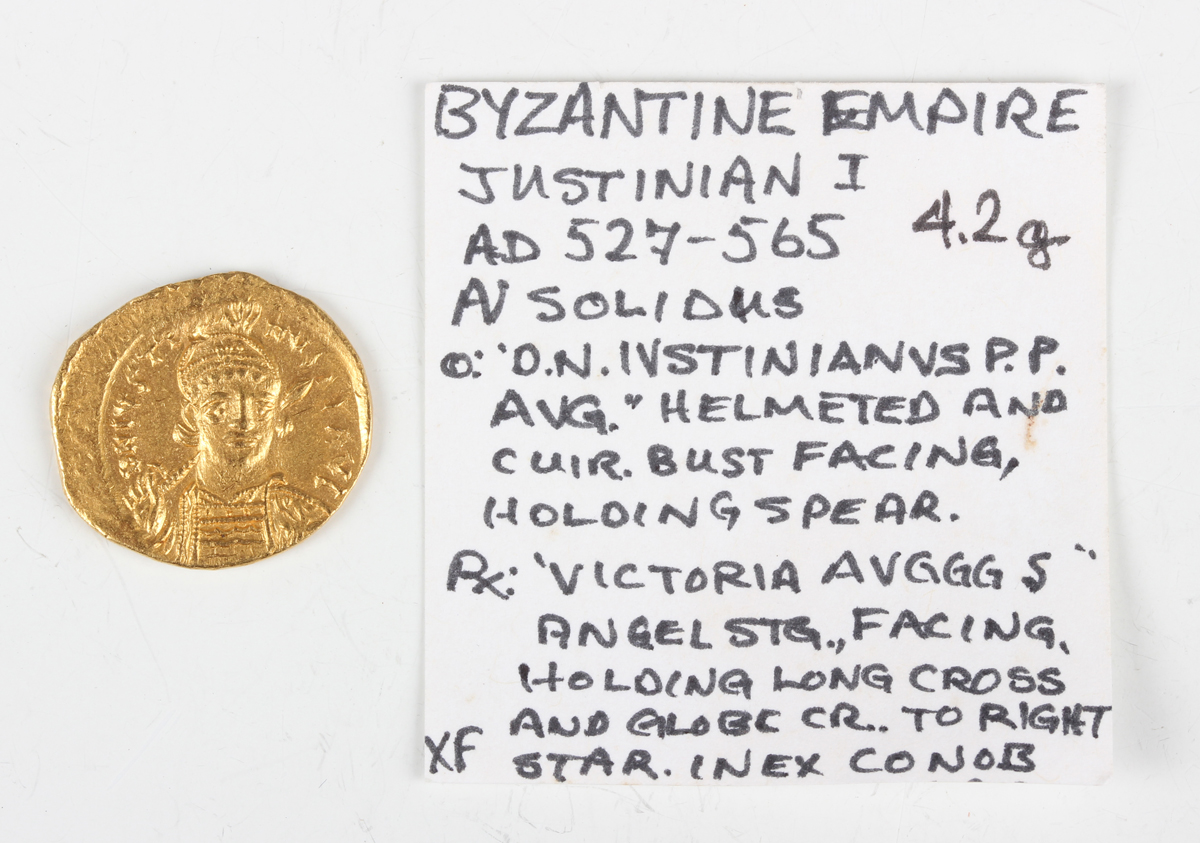 BYZANTINE EMPIRE
JUSTINIAN I
AD 527-565
4.2g
AV SOLIDUS
O: "D.N. IVSTINIANVS P.P.
AVG." HELMETED AND
CUIR. BUST FACING,
HOLDING SPEAR.
Rx: "VICTORIA AVGGG S"
ANGEL STG., FACING,
HOLDING LONG CROSS
AND GLOBE CR.. TO RIGHT
STAR. IN EX CONOB
XF